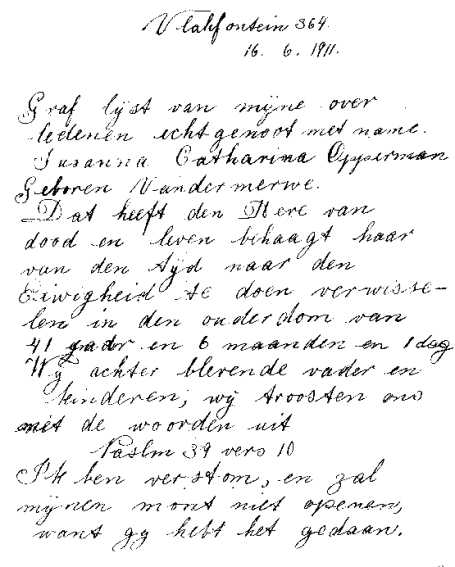 Vlakfontein 364.
16. 6. 1911.
Graf lijst van mijne over
ledenen echtgenoot met name.
Susanna Catharina Opperman
Geboren Vandermerwe.
Dat heeft den Here van
dood en leven behaagt haar
van den tijd naar den
Eiwigheid te doen verwisse-
len in den ouderdom van
41 jaar en 6 maanden en 1 dag
Wij achter blerende vader en
kinderen; wij troosten ons
met de woorden uit
Paslm 39 vers 10
Ik ben verstom, en zal
mijnen mont niet openen,
want gij hebt het gedaan.